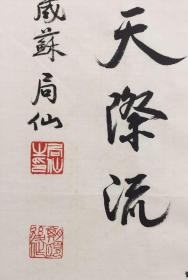 天際流
歲蘇局仙